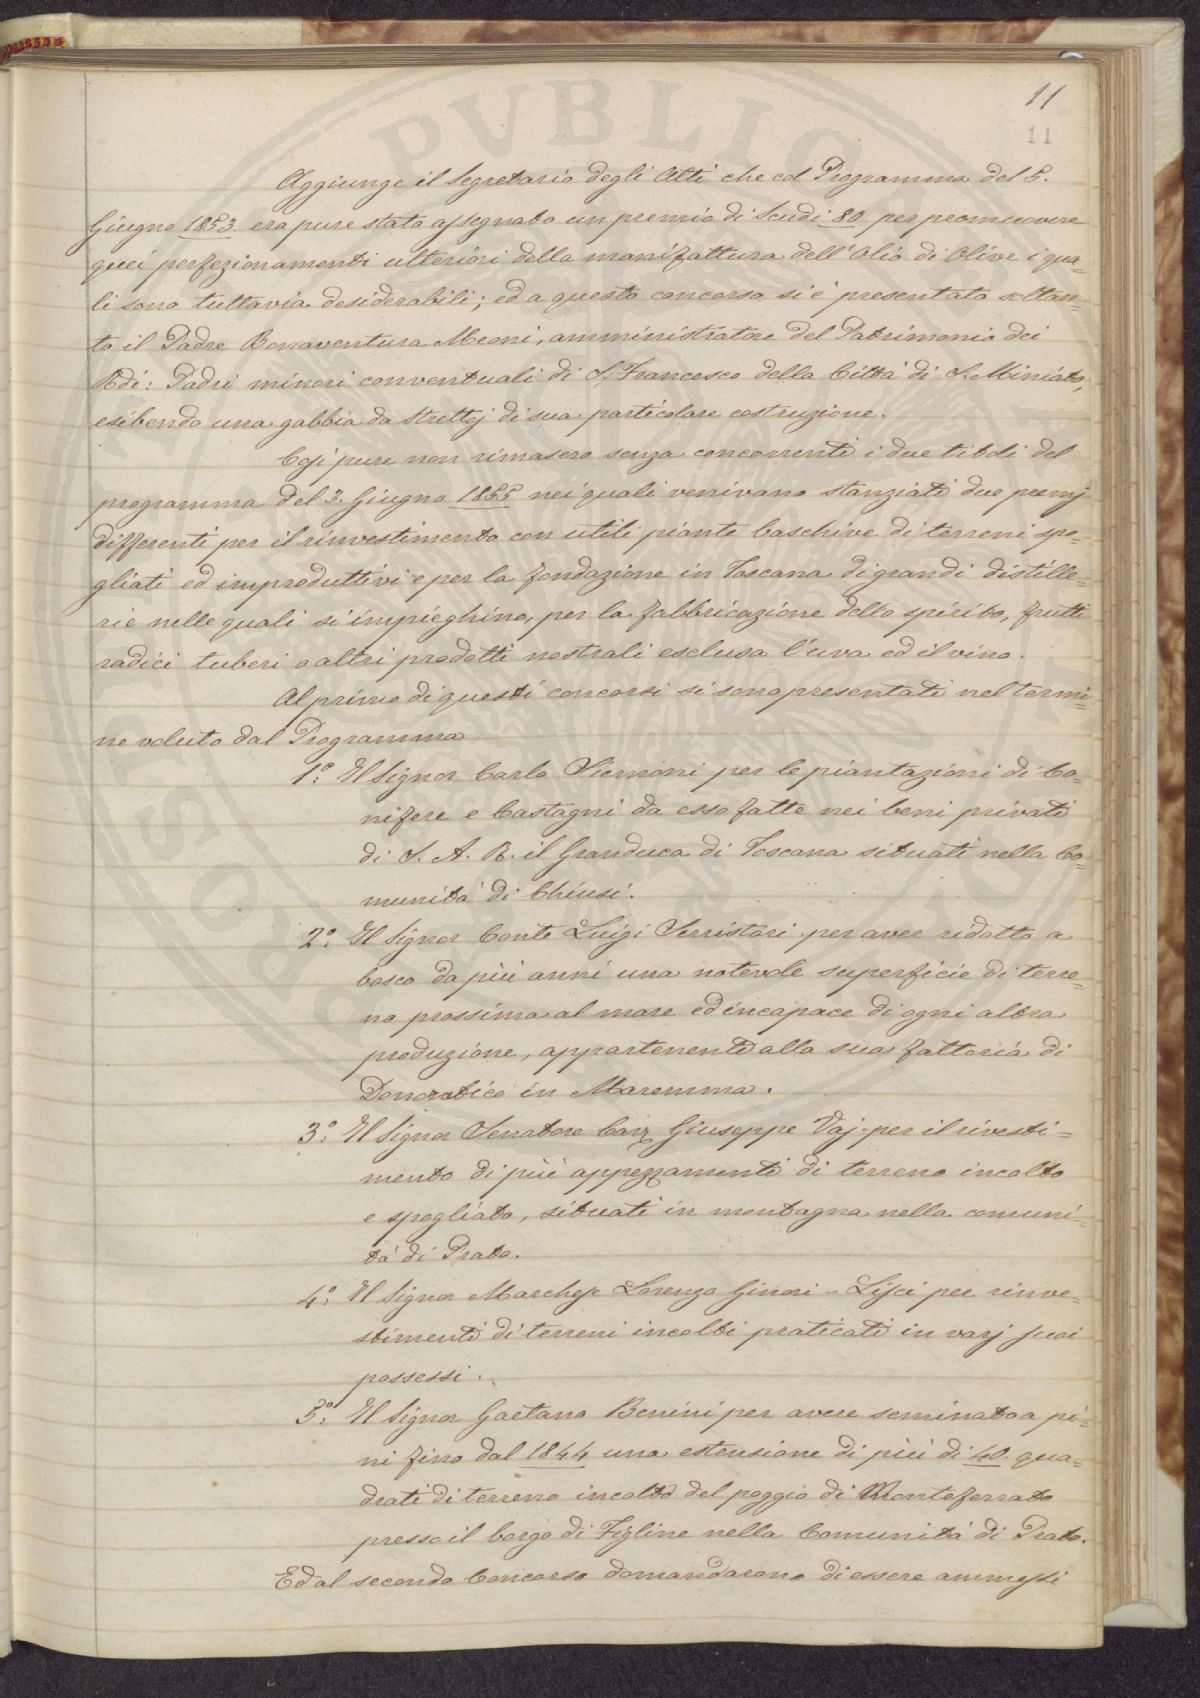 11
11
Aggiunge il Segretario degli Atti che col Programma del 5.
Giugno 1853. era pure stato assegnato un premio di Scudi 80 per promuovere
quei perfezionamenti ulteriori della manifattura dell'Olio di Olive i qua=
li sono tuttavia desiderabili; ed a questo concorso si è presentato soltan=
to il Padre Bonaventura Meoni, amministratore del Patrimonio dei
Rdi: Padri minori conventuali di S. Francesco della Città di S. Miniato,
esibendo una gabbia da Strettoj di sua particolare costruzione.
Così pure non rimasero senza concorrenti i due titoli del
programma del 3. Giugno 1855 nei quali venivano stanziati due premj
differenti per il rinvestimento con utili piante boschive di terreni spo=
gliati ed improduttivi e per la fondazione in Toscana di grandi distille=
rie nelle quali si impieghino, per la fabbricazione dello spirito, frutti
radici tuberi o altri prodotti nostrali esclusa l'uva ed il vino.
Al primo di questi concorsi si sono presentati nel termi=
ne voluto dal Programma
1.° Il Signor Carlo Siemoni per le piantazioni di Co=
nifere e Castagni da esso fatte nei beni privati
di S. A. R. il Granduca di Toscana situati nella Co=
munità di Chiusi.
2.° Il Signor Conte Luigi Serristori per aver ridotto a
bosco da più anni una notevole superficie di terre=
no prossimo al mare ed incapace di ogni altra
produzione, appartenente alla sua fattoria di
Donoratico in Maremma.
3.° Il Signor Senatore Cav. Giuseppe Vaj per il rivesti=
mento di più appezzamenti di terreno incolto
e spogliato, situati in montagna nella comuni=
tà di Prato.
4.° Il Signor Marchese Lorenzo Ginori-Lisci per rinve=
stimenti di terreni incolti praticati in varj suoi
possessi.
5.° Il Signor Gaetano Benini per avere seminato a pi=
ni fino dal 1844 una estensione di più di 40. qua=
drati di terreno incolto del poggio di Monteferrato
presso il borgo di Figline nella Comunità di Prato.
Ed al secondo Concorso domandarono di essere ammessi